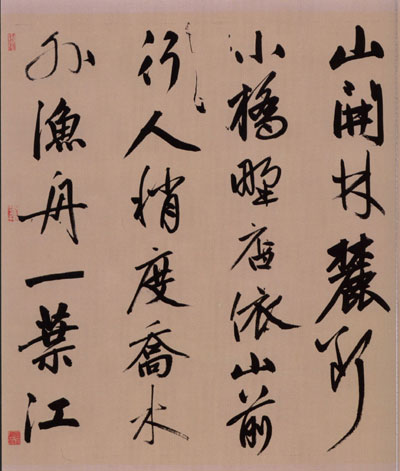 山開林麓斷
小橋野店依山前
行人稍度喬木
外漁舟一葉江